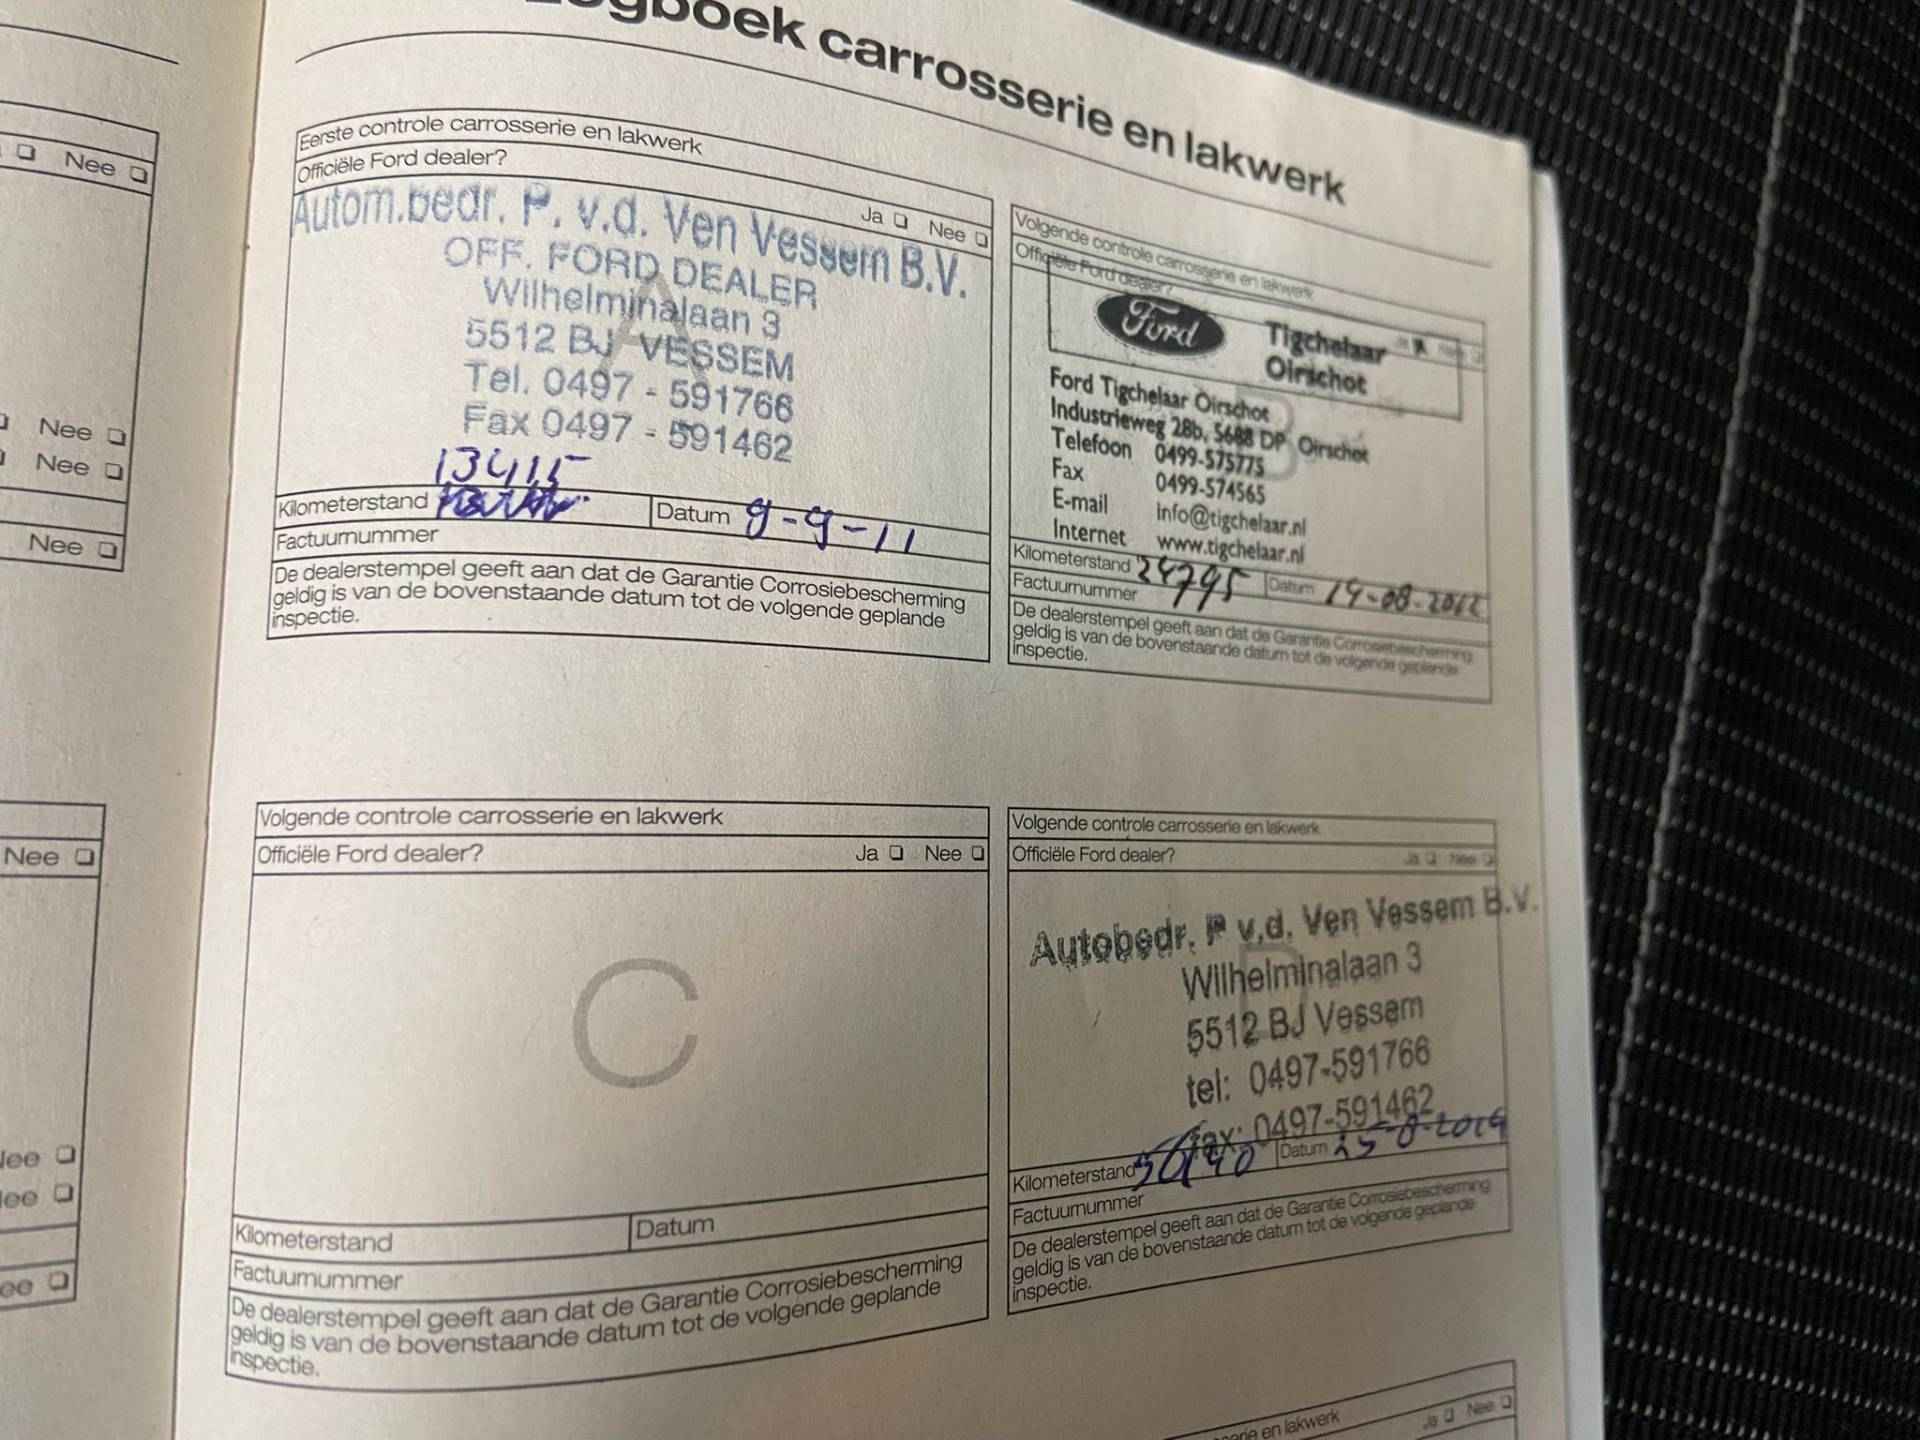 Logboek carrosserie en lakwerk
Nee ❏
Nee ❏
Nee ❏
Nee ❏
Nee ❏
Nee ❏
Nee ❏
ee ❏
Eerste controle carrosserie en lakwerk
Officiële Ford dealer?
Ja ❏ Nee ❏
A
Autom.bedr. P. v.d. Ven Vessem B.V.
OFF. FORD DEALER
Wilhelminalaan 3
5512 BJ VESSEM
Tel. 0497 - 591766
Fax 0497 - 591462
13415
Kilometerstand
Datum 9-9-11
Factuurnummer
De dealerstempel geeft aan dat de Garantie Corrosiebescherming
geldig is van de bovenstaande datum tot de volgende geplande
inspectie.
Volgende controle carrosserie en lakwerk
Officiële Ford dealer?
Ja Nee ❏
B
Ford
Tigchelaar
Oirschot
Ford Tigchelaar Oirschot
Industrieweg 28b, 5688 DP Oirschot
Telefoon 0499-575775
Fax 0499-574565
E-mail info@tigchelaar.nl
Internet www.tigchelaar.nl
Kilometerstand 24795 Datum 14-08-2012
Factuurnummer
De dealerstempel geeft aan dat de Garantie Corrosiebescherming
geldig is van de bovenstaande datum tot de volgende geplande
inspectie.
Volgende controle carrosserie en lakwerk
Officiële Ford dealer? Ja ❏ Nee ❏
C
Kilometerstand Datum
Factuurnummer
De dealerstempel geeft aan dat de Garantie Corrosiebescherming
geldig is van de bovenstaande datum tot de volgende geplande
inspectie.
Volgende controle carrosserie en lakwerk
Officiële Ford dealer? Ja ❏ Nee ❏
D
Autobedr. P v.d. Ven Vessem B.V.
Wilhelminalaan 3
5512 BJ Vessem
tel: 0497-591766
fax: 0497-591462
Kilometerstand Datum
Factuurnummer
De dealerstempel geeft aan dat de Garantie Corrosiebescherming
geldig is van de bovenstaande datum tot de volgende geplande
inspectie.
serie en lakwerk
Ja ❏ Nee ❏